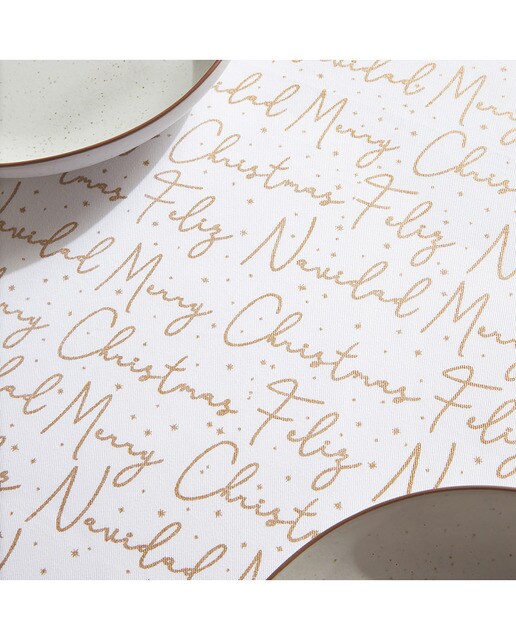 Navidad
Navidad Merry Christmas
Christmas Feliz
Christmas Feliz Navidad Merry
Navidad Merry Christmas Feliz
Merry Christmas Feliz Navidad
Navidad Merry Christmas
Navidad